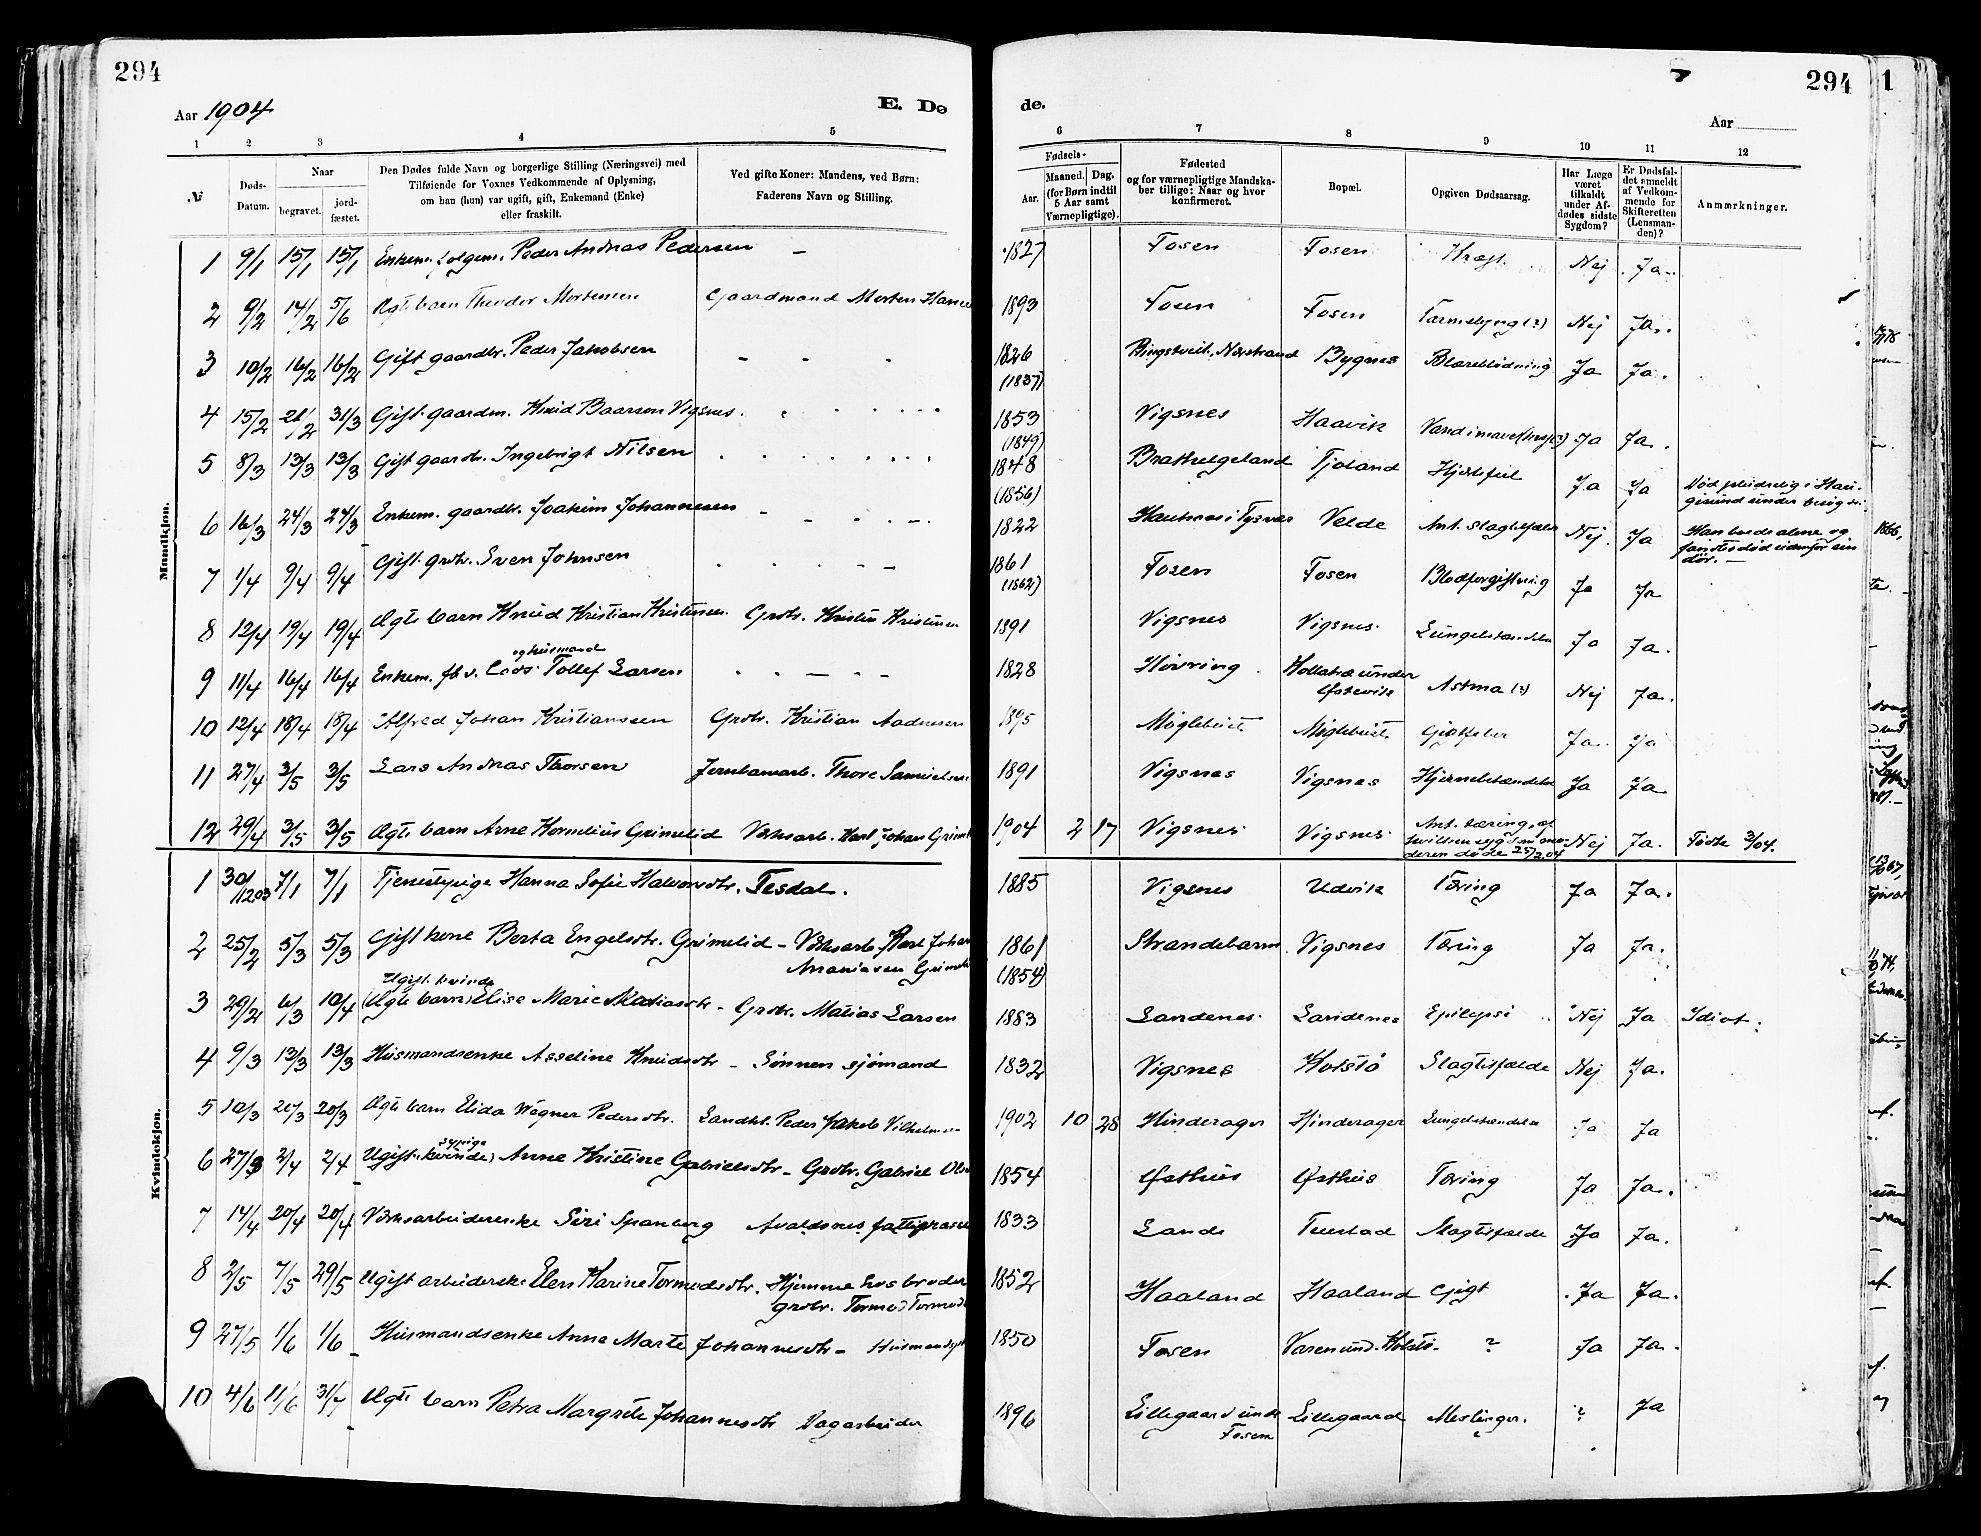 294
Aar 1904
E. Dø
1 2 3 4 5
№
Døds-Datum.
Naar
begravet.
jord-fæstet.
Den Dødes fulde Navn og borgerlige Stilling (Næringsvei) med
Tilføiende for Voxnes Vedkommende af Oplysning,
om han (hun) var ugift, gift, Enkemand (Enke)
eller fraskilt.
Ved gifte Koner: Mandens, ved Børn:
Faderens Navn og Stilling.
294
de.
Aar
6 7 8 9 10 11 12
Fødsels-
Aar.
Maaned. Dag.
(for Børn indtil
5 Aar samt
Værnepligtige).
Fødested
og for værnepligtige Mandska-
ber tillige: Naar og hvor
konfirmeret.
Bopæl.
Opgiven Dødsaarsag.
Har Læge
været
tilkaldt
under Af-
dødes sidste
Sygdom?
Er Dødsfal-
det anmeldt
af Vedkom-
mende for
Skifteretten
(Lensman-
den)?
Anmærkninger.
Mandkjøn.
1 9/1 15/1 15/1 Enkem. folgem. Peder Andreas Pedersen — 1827 Fosen Fosen Kræft Nej Ja.
2 9/2 14/2 5/6 Ægte barn Theodor Mortensen Gaardmand Morten 1893 Fosen Fosen (?) Nej Ja.
3 10/2 16/2 16/2 Gift gaardbr. Peder Jakobsen 1826 (1837) Ringstveit, Nærstrand Bygnes Blæreblødning Ja Ja.
4 15/2 21/2 31/3 Gift gaardm. Knud Baarsen Vigsnes. 1853 (1849) Vigsnes Haavik Ja Ja.
5 8/3 13/3 13/3 Gift gaardbr. Ingebrigt Nilsen 1848 (1856) Brathelgeland Tjoland Hjertefeil Ja Ja
6 16/3 24/3 24/3 Enkem. gaardbr. Joakim Johannesen 1822 i Tysvær Velde Ant. slagtilfælde Nej. Ja Han boede alene og
fandtes død udenfor sin
dør. —
7 1/4 9/4 9/4 Gift grbr. Sven Johnsen 1861 (1862) Fosen Fosen Blodforgiftning Ja Ja
8 12/4 19/4 19/4 Ægte barn Knud Kristian Kristensen Grbr. 1891 Vigsnes Vigsnes Lungebetændelse Ja Ja.
9 11/4 16/4 16/4 Enkem. fh.v. Lods og husmand Tollef Larsen 1828 Høvring under Østevik Astma (?) Nej Ja.
10 12/4 18/4 18/4 Alfred Johan Kristianssen Grbr. Kristian Andersen 1895 Møglebust Møglebust Gigtfeber Ja. Ja
11 27/4 3/5 3/5 Lars Andreas Thorsen Jernbanearb. Thore 1891 Vigsnes Vigsnes Hjernebetændelse Ja Ja
12 29/4 3/5 3/5 Ægte barn Arne Kornelius Grimelid Verksarb. Karl Johan 1904 2 17 Vigsnes Vigsnes Ant. tæring, af
hvilken sygdom mo-
deren døde 25/2 04 Nej Ja. Fødte 3/04.
Kvindekjøn.
1 30/12 03 7/1 7/1 Tjenestepige Hanna Sofie Halvorsdtr. Tesdal. 1885 Vigsnes Udvik Tæring Ja Ja.
2 25/2 5/3 5/3 Gift kone Berta Engelsdtr. Grimelid - Verksarb. Karl Johan
Ananiasen 1861 (1854) Strandebarm Vigsnes Tæring Ja Ja.
3 29/2 6/3 10/4 Ugift kvinde
(Ægte barn) Elise Marie Matiasdtr - Grbr. Matias Larsen 1883 Sandenes Sandenes Epilepsi Nej Ja Idiot.
4 9/3 13/3 13/3 Husmandsenke Asseline Knudsdtr - Sønnen sjømand 1832 Vigsnes Holstø Slagtilfælde Nej Ja.
5 10/3 20/3 20/3 Ægte barn Elida Wagner Pedersdtr. Landh. Peder Jakob 1902 10 28 Hinderager Hinderager Lungebetændelse Ja Ja
6 27/3 2/4 2/4 Ugift (kvinde) sypige Anne Kristine Gabrielsdtr - Grbr. Gabriel 1854 Østhus Østhus Tæring Ja Ja.
7 14/4 20/4 20/4 Verksarbeiderenke Siri Spanberg Avaldsnes fattigkasse 1833 Sande Tuestad Slagtilfælde Ja Ja.
8 2/5 7/5 29/5 Ugift arbeiderske Elen Karine Tormodsdtr. Hjemme hos broder
grbr. Tormod 1852 Haaland Haaland Gigt Ja Ja.
9 27/5 1/6 1/6 Husmandsenke Anne Marte Johannesdtr - 1850 Fosen Varen und. Holstø ? Ja Ja.
10 4/6 11/6 31/7 Ægte barn Petra Margrete Johannesdtr Dagarbeider 1896 Lillegaard und.
Fosen Lillegaard Meslinger. ? Ja
1